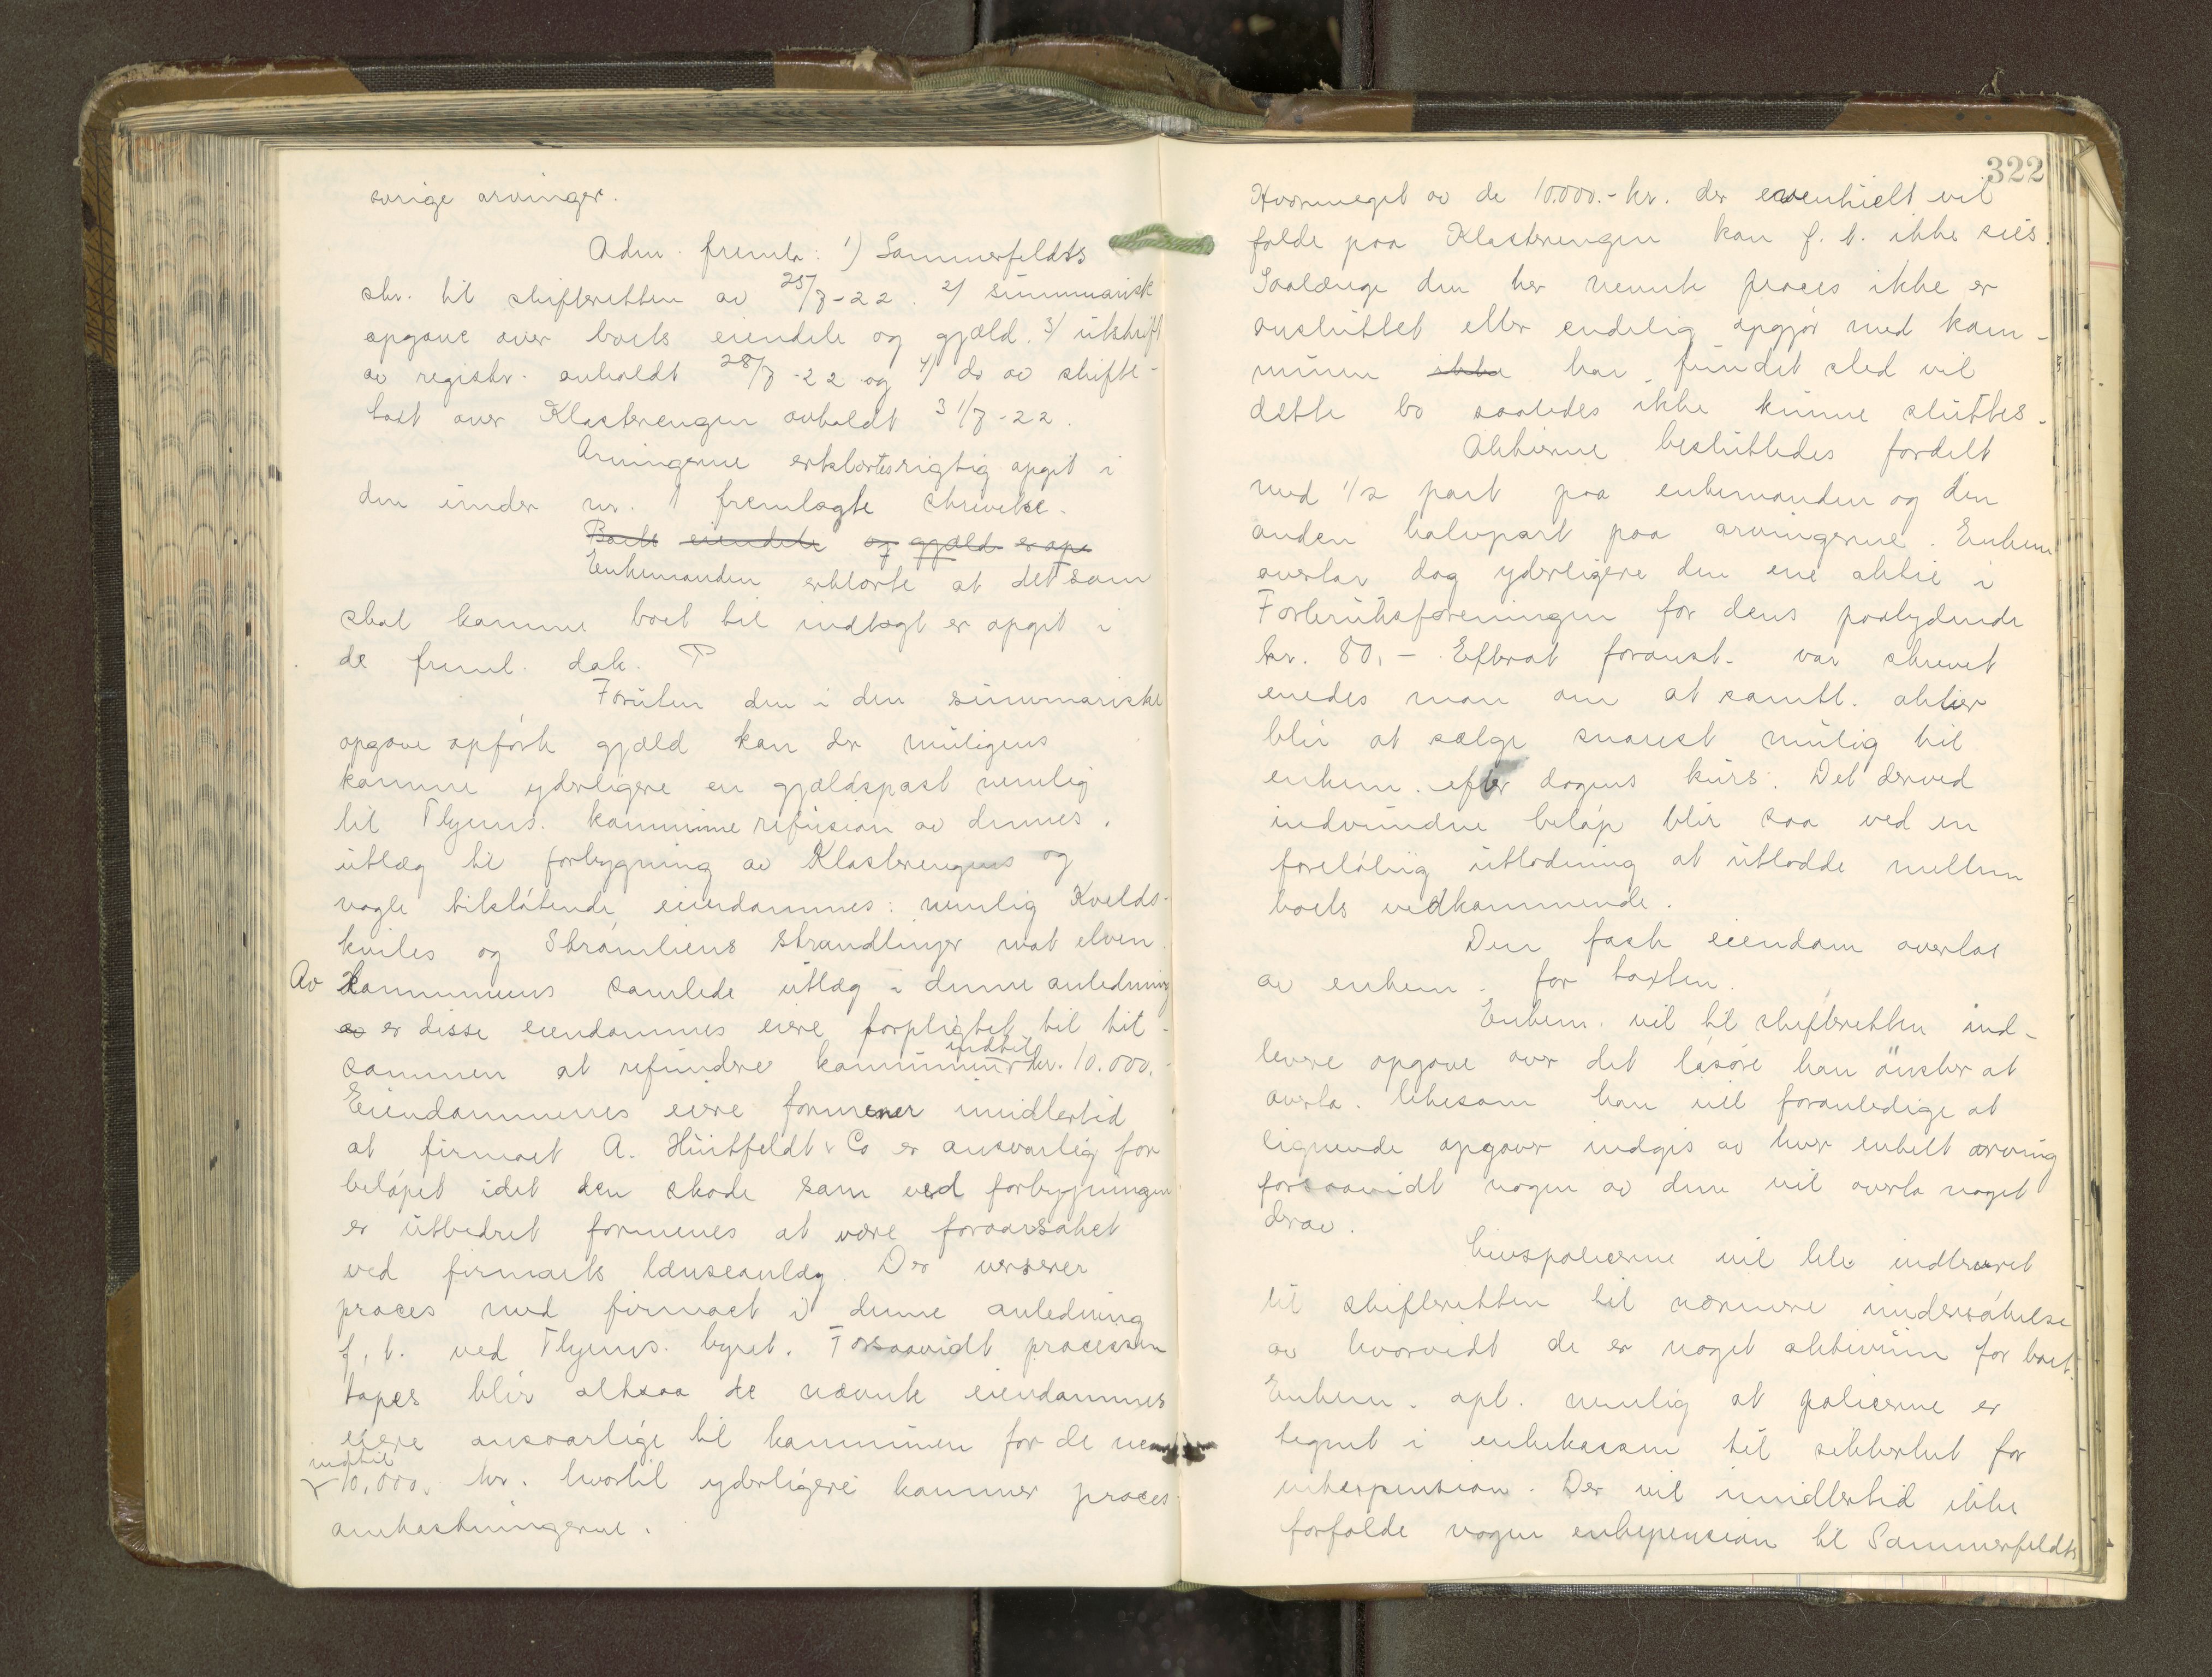 øvrige arvinger.
Adm. fremla: 1) Sommerfeldts
skr. til skifteretten av 25/7-22. 2) summarisk
opgave over boets eiendele og gjæld. 3) utskrift
av registr. avholdt 28/7-22 og 4) do av skifte-
takst over Klosterengen avholdt 31/7-22.
Arvingerne erklærtes rigtig opgit i
den under nr. 1 fremlagte skrivelse.
Boets eiendele og gjæld er opg
Enkemanden erklærte at det som
skal komme boet til indtægt er opgit i
de freml. dok.
Foruten den i den summariske
opgave opførte gjæld kan der muligens
komme yderligere en gjældspost nemlig
til Tlgens. kommune refusion av dennes
utlæg til forbygning av Klosterengens og
nogle tilstøtende eiendommes: nemlig Kvelds-
hviles og Strømliens strandlinjer mot elven.
Av kommunens samlede utlæg i denne anledning
av er disse eiendommes eiere forpligtet til til-
sammen at refundere kommunen indtil kr. 10.000.-
Eiendommenes eiere formener imidlertid
at firmaet A. Huitfeldt & Co er ansvarlig for
beløpet idet den skade som ved forbygningen
er utbedret formenes at være foraarsaket
ved firmaets lænseanlæg. Der verserer
proces med firmaet i denne anledning
f. t. ved Tlgens. byret. Forsaavidt processen
tapes blir altsaa de nævnte eiendommes
eiere ansvarlige til kommunen for de nevnte
indtil
10.000. kr. hvortil yderligere kommer proces-
omkostningerne.
322
Hvormeget av de 10.000.- kr. der eventuelt vil
falde paa Klosterengen kan f. t. ikke sies.
Saalænge den her nevnte proces ikke er
avsluttet eller endelig opgjør med kom-
munen ikke har fundet sted vil
dette bo saaledes ikke kunne sluttes.
Aktierne besluttedes fordelt
med 1/2 part paa enkemanden og den
anden halvpart paa arvingerne. Enkem
overtar dog yderligere den ene aktie i
Forbruksforeningen for dens paalydende
kr. 80,- Efterat foranst. var skrevet
enedes man om at samtl. aktier
blir at sælge snarest mulig til
enkem. efter dagens kurs. Det derved
indvundne beløp blir saa ved en
foreløbig utlodning at utlodde mellem
boets vedkommende.
Den faste eiendom overtas
av enkem. for taxten.
Enkem. vil til skifteretten ind-
levere opgave over det løsøre han ønsker at
overta. likesom han vil foranledige at
lignende opgaver indgis av hver enkelt arving
forsaavidt nogen av dem vil overta noget
derav.
Livspolicerne vil bli indleveret
til skifteretten til nærmere undersøkelse
av hvorvidt de er noget aktivum for boet.
Enkem. opl. nemlig at policerne er
tegnet i enkekassen til sikkerhet for
enkepension. Der vil imidlertid ikke
forfalde nogen enkepension til Sommerfeldts